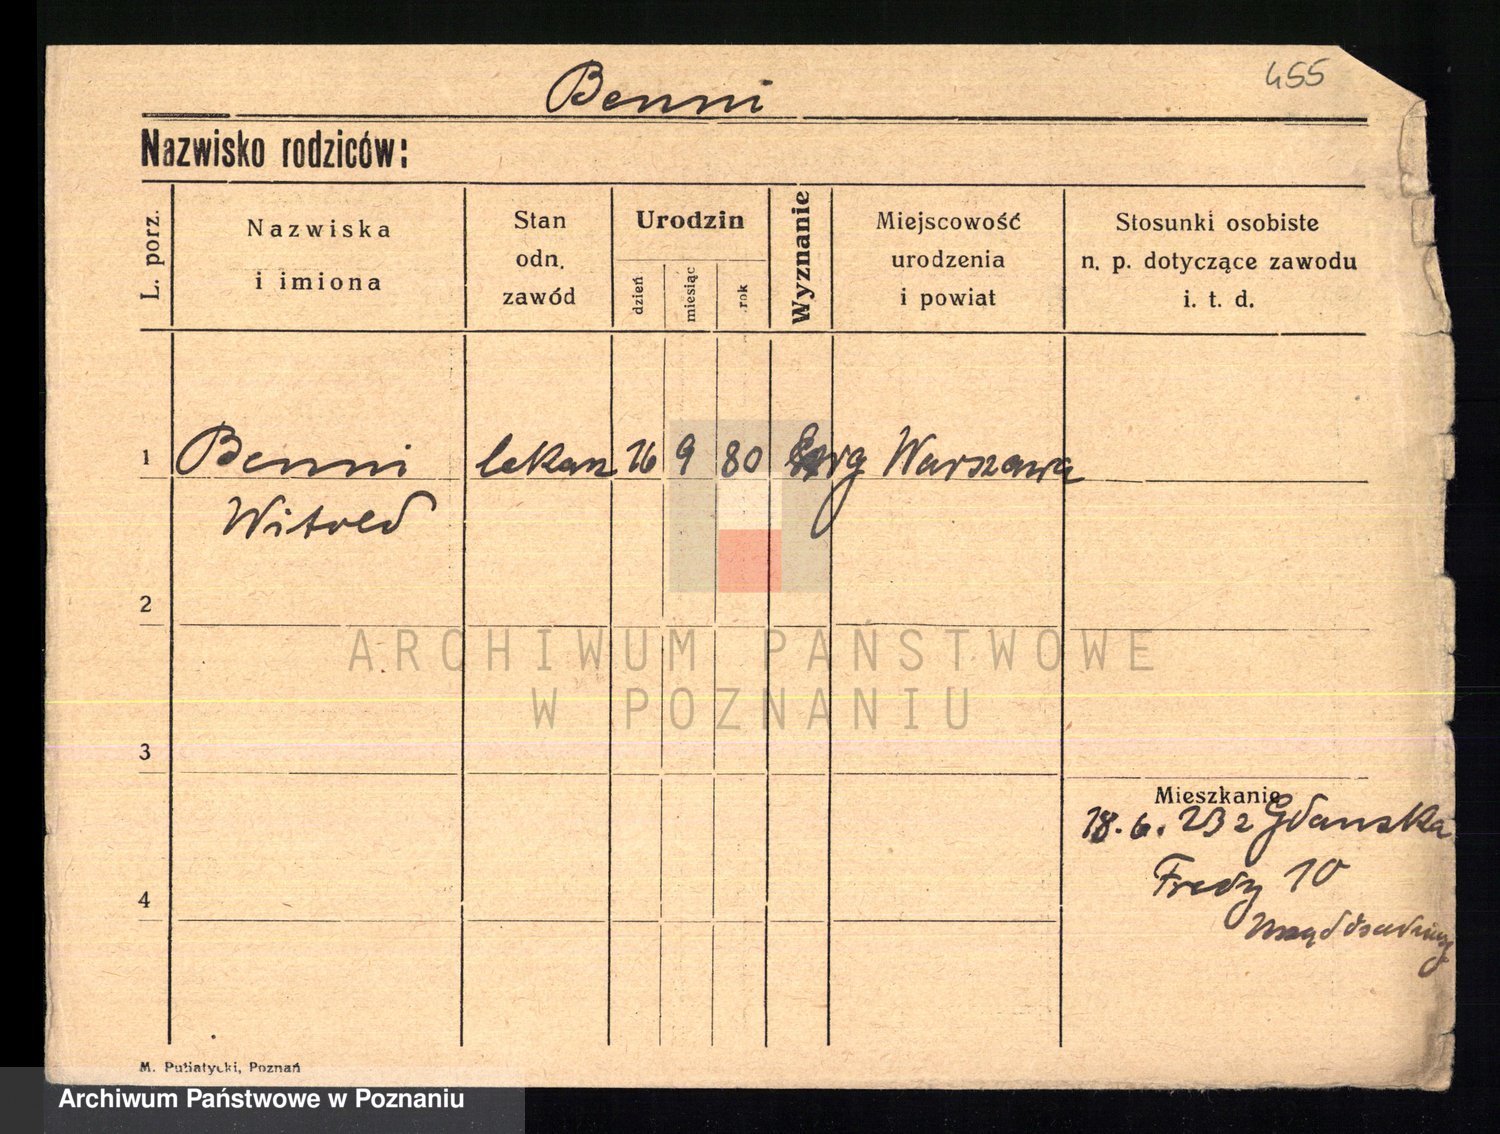 455
Benni
Nazwisko rodziców:
L. porz.
Nazwiska
i imiona
Stan
odn.
zawód
Urodzin
dzień
miesiąc
rok
Wyznanie
Miejscowość
urodzenia
i powiat
Stosunki osobiste
n. p. dotyczące zawodu
i. t. d.
1 Benni lekarz 16 9 80 Warszawa
Witold
2
ARCHIWUM PAŃSTWOWE
W POZNANIU
3
Mieszkanie
18. 6. 23 z Gdańska
Fredry 10
4
M. Putiatycki, Poznań
Archiwum Państwowe w Poznaniu